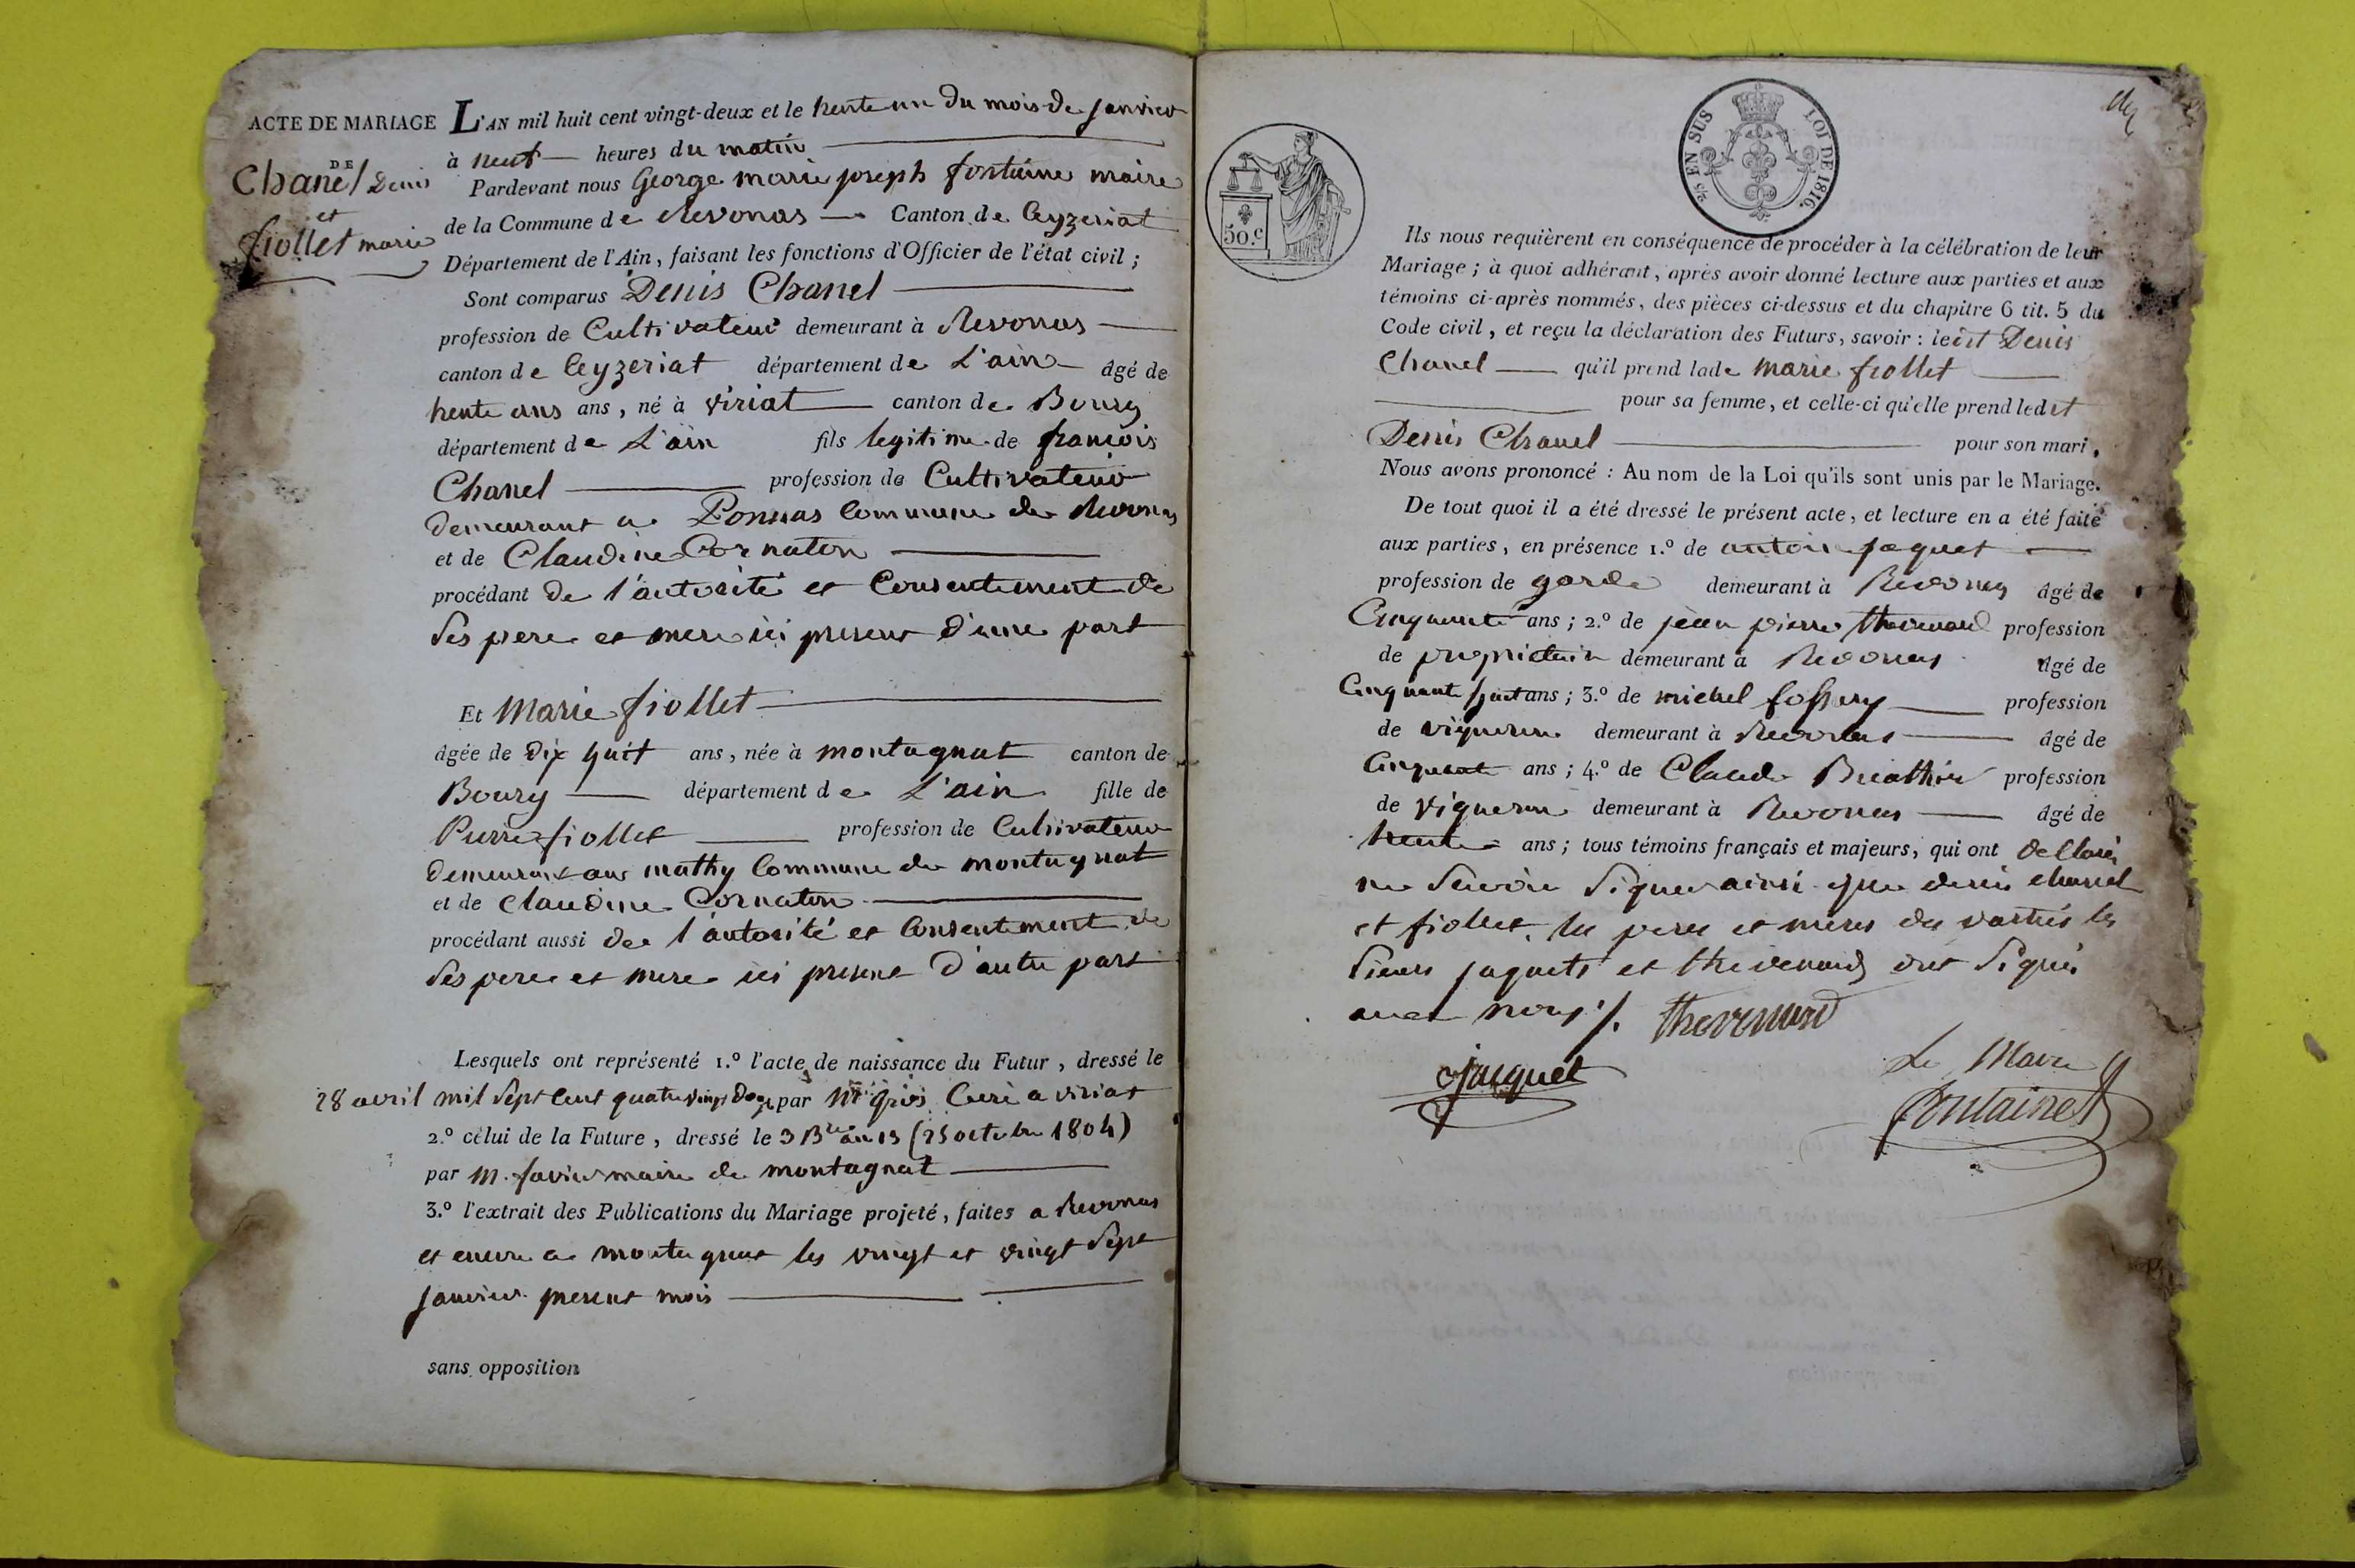 ACTE DE MARIAGE
DE
Chanel Denis
et
fiollet marie
L'AN mil huit cent vingt-deux et le trente un du mois de janvier
à neuf heures du matin
Pardevant nous George marie joseph fontaine maire
de la Commune de Revonas Canton de Ceyzeriat
Département de l'Ain, faisant les fonctions d'Officier de l'état civil ;
Sont comparus Denis Chanel
profession de Cultivateur demeurant à Revonas
canton de Ceyzeriat département de L'ain âgé de
trente ans ans, né à viriat canton de Bourg
département de L'ain fils legitime de francois
Chanel profession de Cultivateur
demeurant a Commune de Revonas
et de Claudine Cornaton
procédant de l'autorité et Consentement de
Ses pere et mere ici present d'une part
Et Marie fiollet
âgée de dix huit ans, née à montagnat canton de
Bourg département de L'ain fille de
Pierre fiollet profession de Cultivateur
demeurant au mathy Commune de montagnat
et de Claudine Cornaton
procédant aussi de l'autorité et Consentement de
Ses pere et mere ici present d'autre part
Lesquels ont représenté 1.º l'acte de naissance du Futur, dressé le
28 avril mil Sept Cent quatre vingt par Curé a viriat
2.º celui de la Future, dressé le 3 B.re an 13 (25 octobre 1804)
par M. favier maire de montagnat
3.º l'extrait des Publications du Mariage projeté, faites a Revonas
et encore a montagnat les vingt et vingt Sept
janvier present mois
sans opposition
50.c
EN SUS LOI DE 1816.
Ils nous requièrent en conséquence de procéder à la célébration de leur
Mariage ; à quoi adhérant, après avoir donné lecture aux parties et aux
témoins ci-après nommés, des pièces ci-dessus et du chapitre 6 tit. 5 du
Code civil, et reçu la déclaration des Futurs, savoir : ledit Denis
Chanel qu'il prend lade marie fiollet
pour sa femme, et celle-ci qu'elle prend ledit
Denis Chanel pour son mari,
Nous avons prononcé : Au nom de la Loi qu'ils sont unis par le Mariage.
De tout quoi il a été dressé le présent acte, et lecture en a été faite
aux parties, en présence 1.º de antoine jaquet
profession de garde demeurant à Revonas âgé de
Cinquante ans ; 2.º de jean pierre thevenard profession
de proprietaire demeurant à Revonas âgé de
Cinquante huit ans ; 3.º de michel profession
de vigneron demeurant à Revonas âgé de
Cinquante ans ; 4.º de Claude profession
de vigneron demeurant à Revonas âgé de
trente ans ; tous témoins français et majeurs, qui ont declaré
ne Savoir Signer ainsi que denis chanel
et fiollet, les peres et meres des parties les
Sieurs jaquet et thevenard ont Signé
avec nous ./. thevenard
Jacquet
Le Maire
fontaine